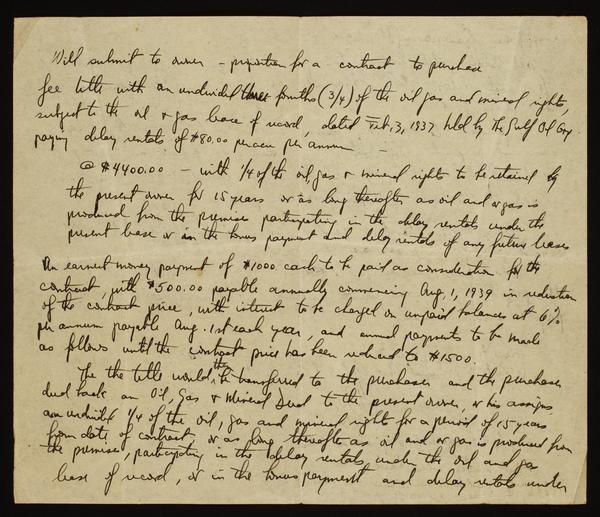 Will submit to owner – proposition for a contract to purchase
fee title with an undivided three fourths (3/4) of the oil gas and mineral rights,
subject to the oil & gas lease of record, dated Feb. 3, 1937 held by The Gulf Oil Corp.
paying delay rentals of $80.00 per acre per annum –
@ $4400.00 – with 1/4 of the oil, gas & mineral rights to be retained by
the present owner for 15 years or as long thereafter as oil and or gas is
produced from the premises participating in the delay rentals under the
present lease or in the bonus payment and delay rentals of any future leases
An earnest money payment of $1000 cash to be paid as consideration for the
contract, with $500.00 payable annually commencing Aug. 1, 1939 in reduction
of the contract price, with interest to be charged on unpaid balances at 6%
per annum payable Aug. 1st each year, and annual payments to be made
as follows until the contract price has been reduced to $1500.
The the title would be transferred to the purchaser and the purchaser
deed back an Oil, Gas & Mineral Deed to the present owner, or his assigns
an undivided 1/4 of the oil, gas and mineral rights for a period of 15 years
from date of contract, or as long thereafter as oil and or gas is produced from
the premise, participating in the delay rentals, under the oil and gas
lease of record, or in the bonus payment and delay rentals under